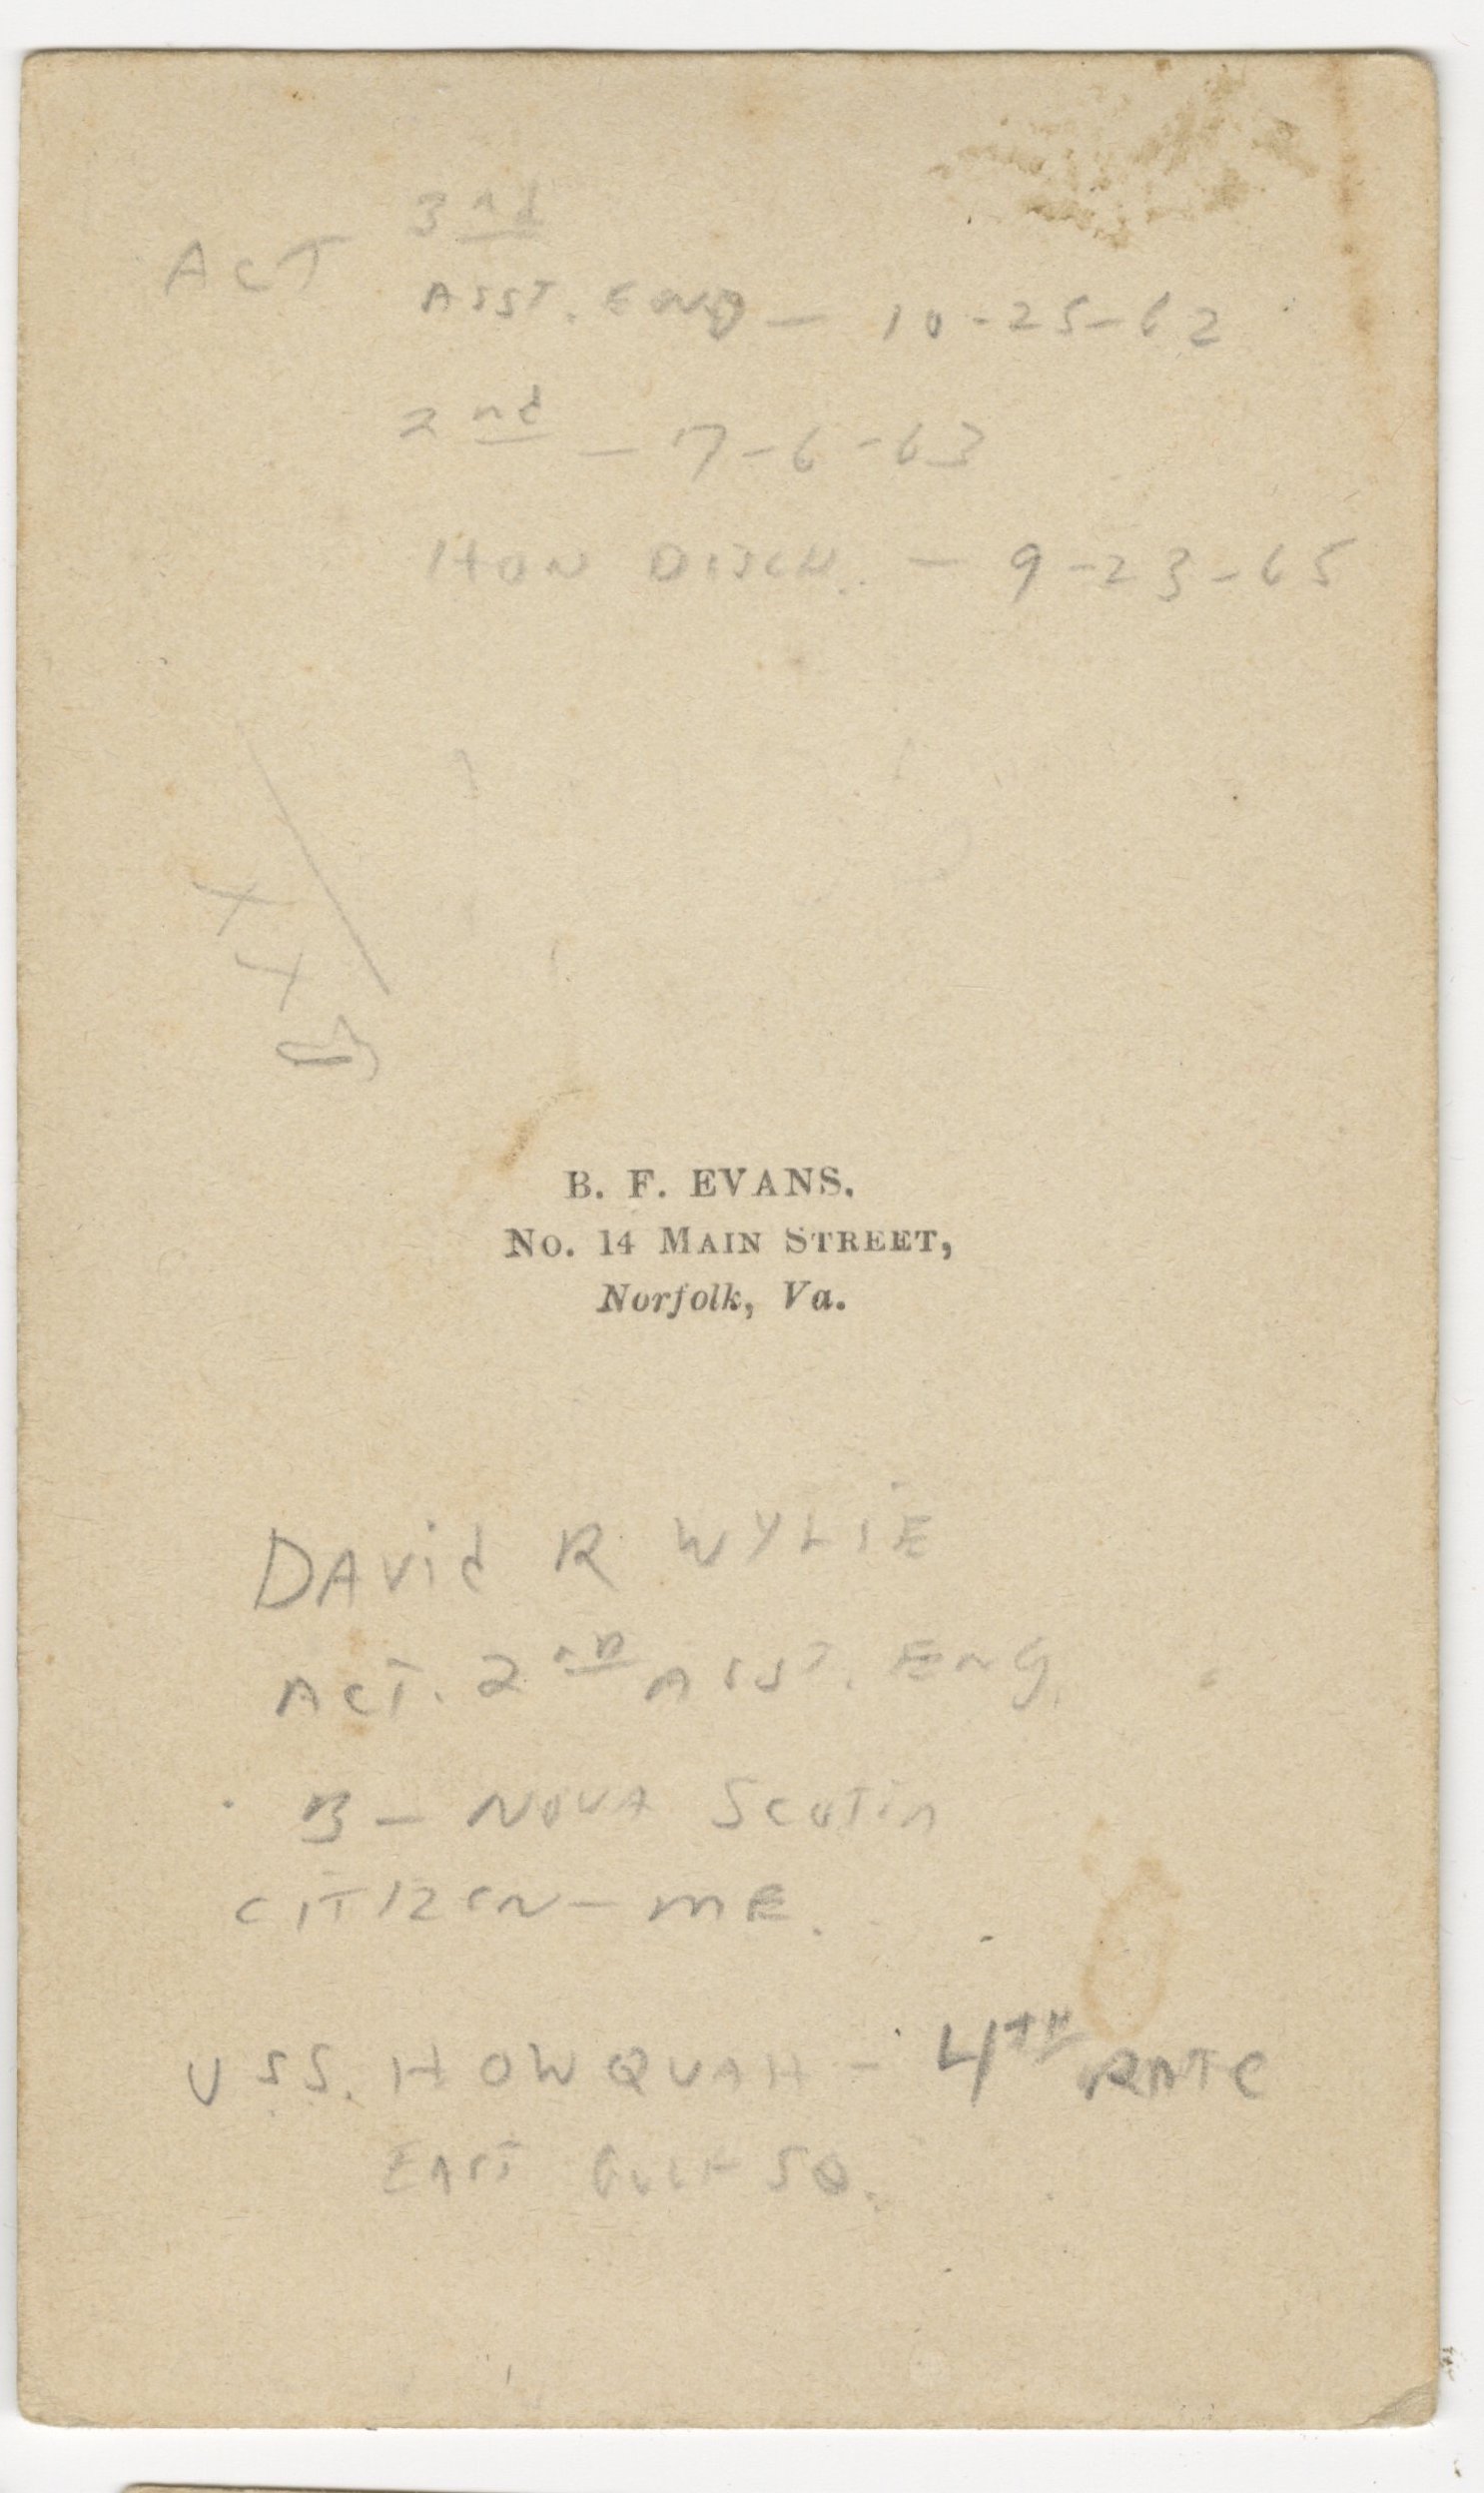 ACT 3nd
ASST. ENG — 10-25-62
2nd — 7-6-63
HON DISCH. — 9-23-65
B. F. EVANS,
No. 14 MAIN STREET,
Norfolk, Va.
DAVid R WYLIE
ACT. 2nd ASST. ENG.
B — NOVA SCOTiA
CITIZEN — ME.
USS. HOWQUAH - 4TH RATE
EAST GULF SQ.